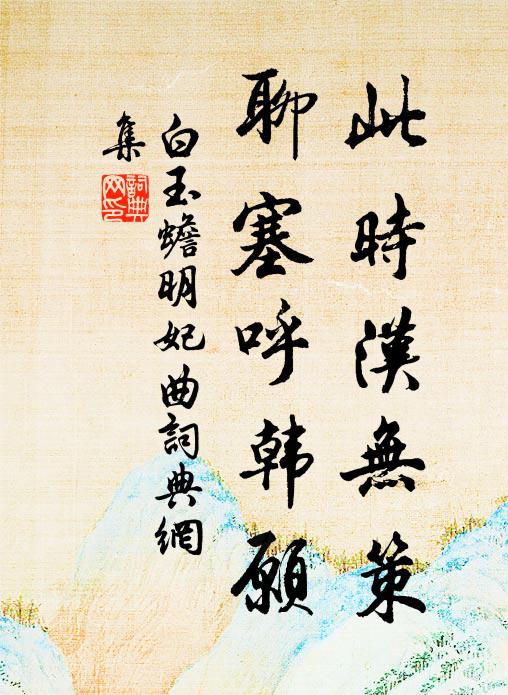 此時漢無策
聊塞呼韓願
白玉蟾明妃曲詞典網
集
詞典网印